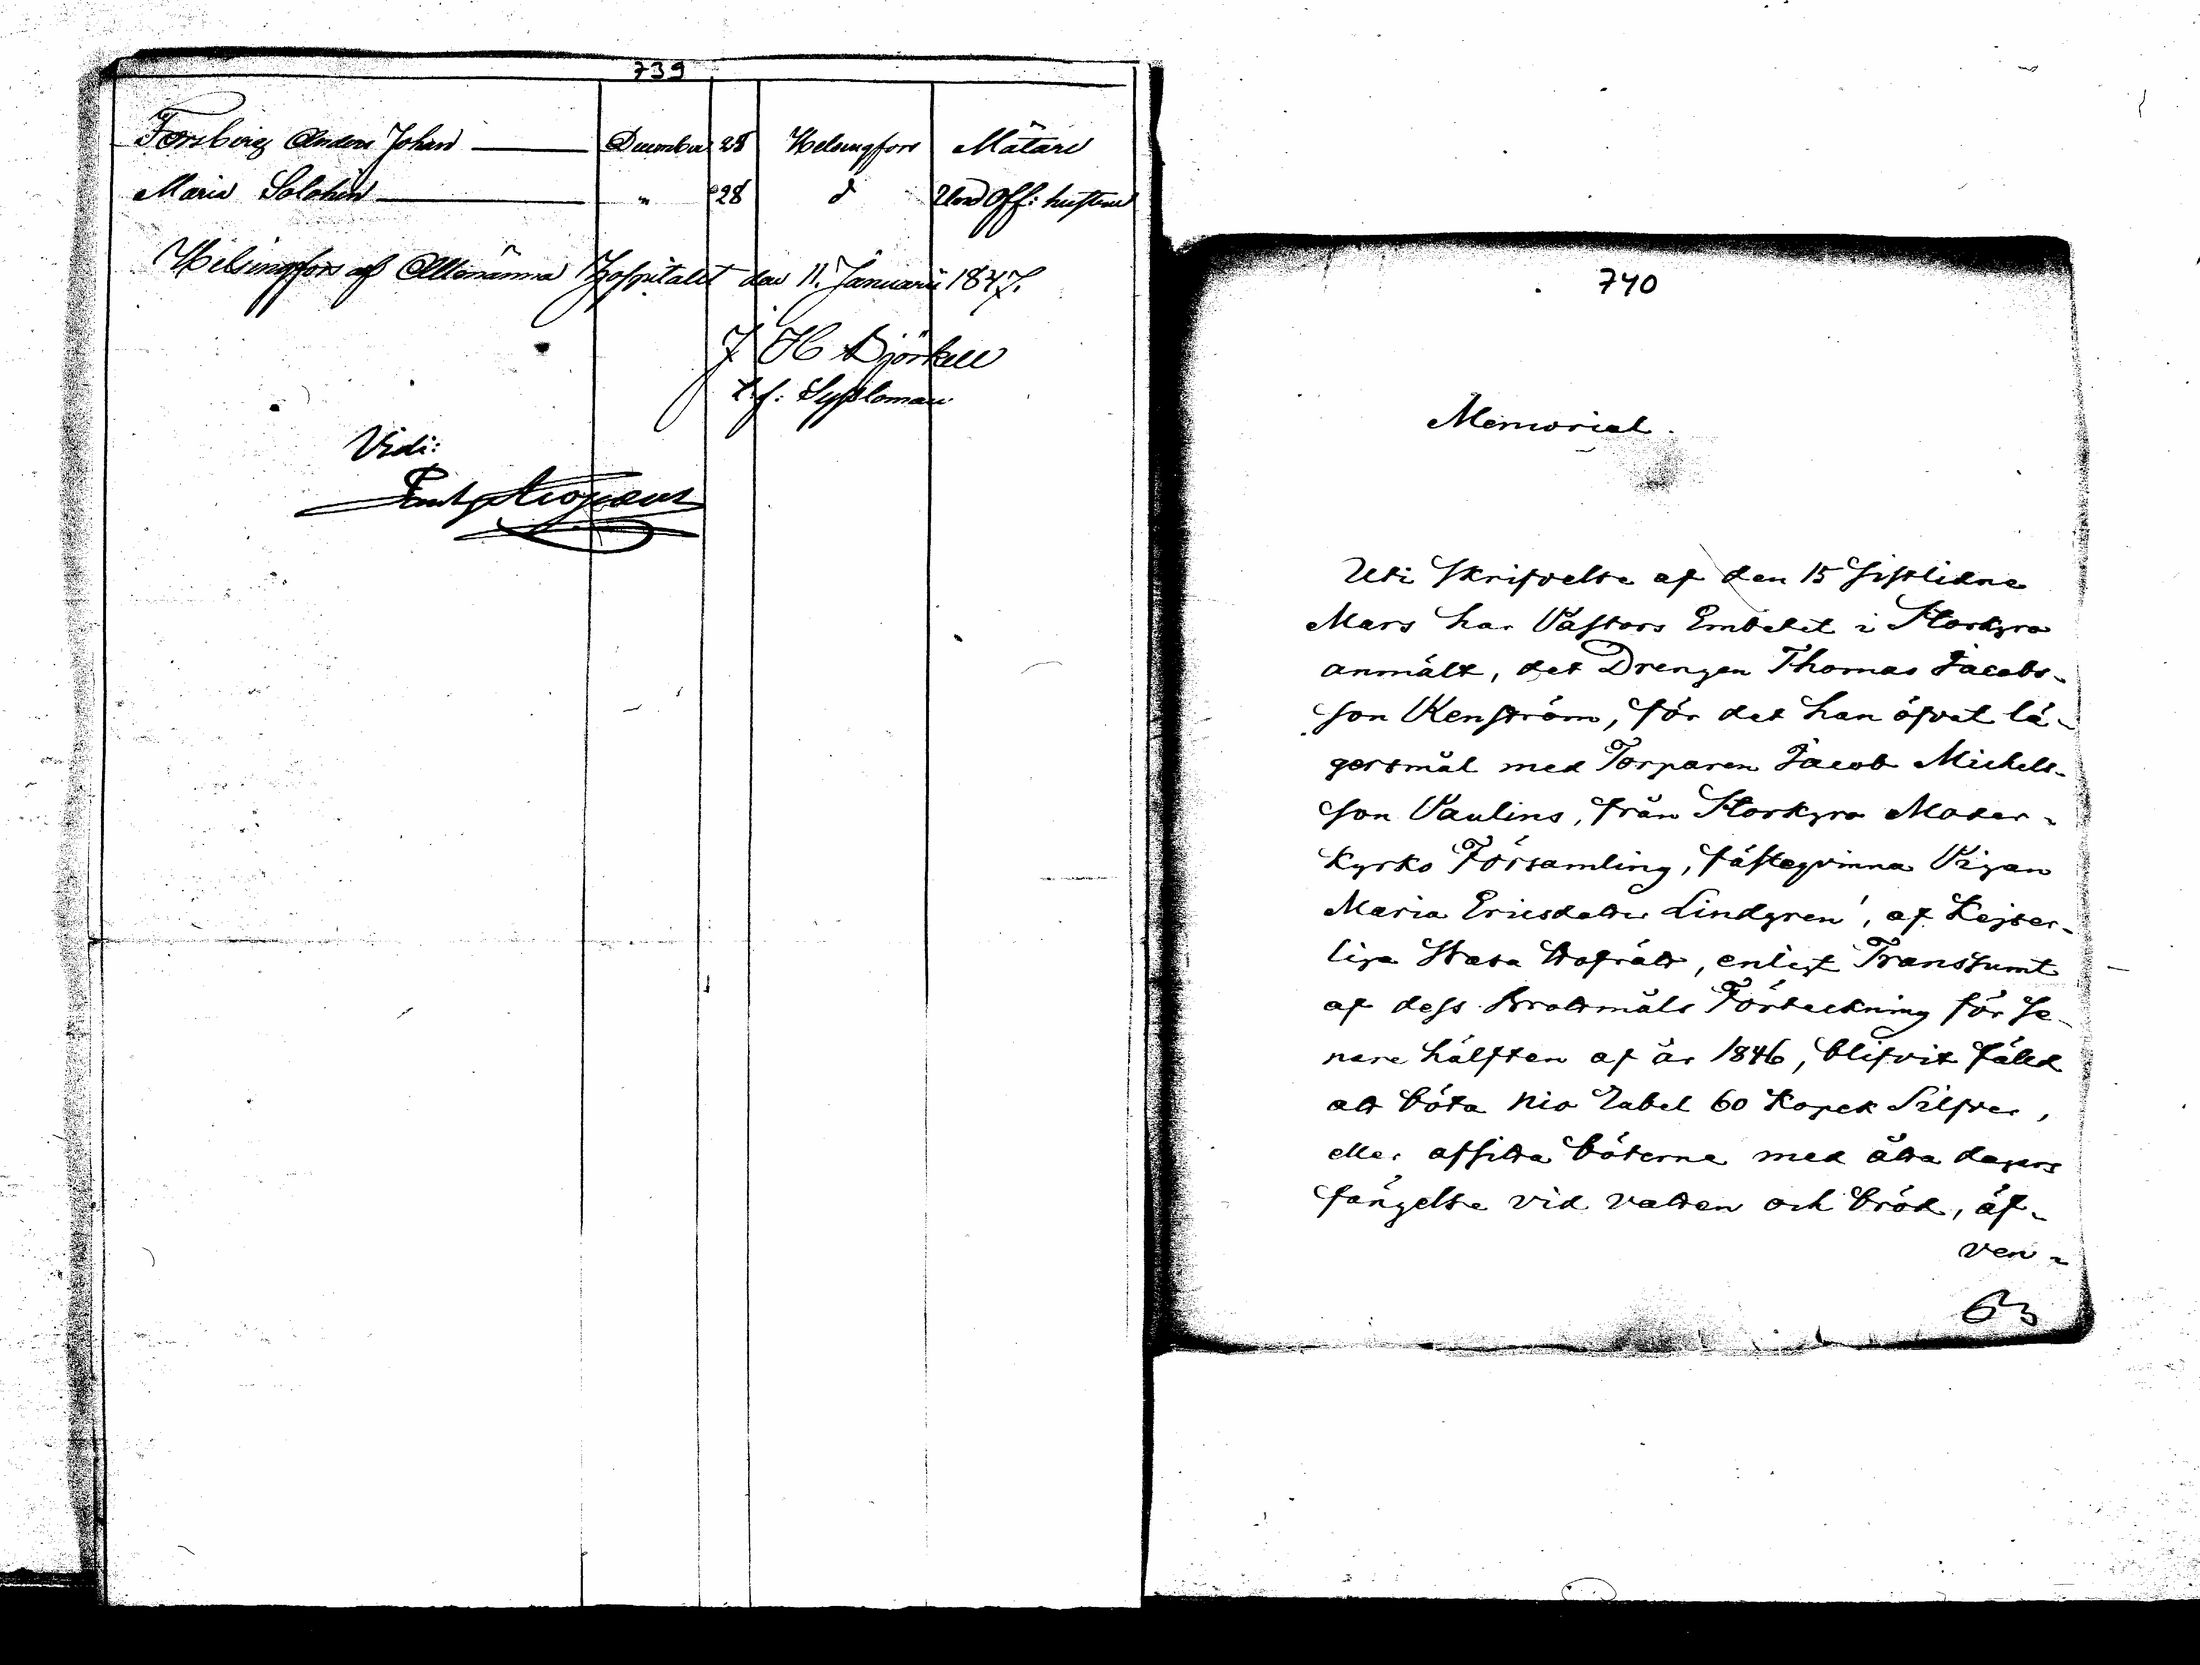 739
Forsberg Anders Johan December 28 Helsingfors Mätare
Maria Solohin " 28 d Und Off: hustru
Helsingfors af Allmänna Hospitalet den 11. Januarii 1847.
J H Björkell
t.f: Syssloman
Vidi:
740
Memorial.
Uti Skrifvelse af den 15 sistlidne
Mars har Pastors Embetet i Storkyro
anmält, det Drengen Thomas Jacobs-
son Renström, för det han öfvat lä-
gersmål med Torparen Jacob Michels-
son Paulins, från Storkyro Moder-
kyrko Församling, fästeqvinna Pigan
Maria Ericsdotter Lindgren, af Kejser-
liga Wasa Hofrätt, enligt Transsumt
af dess Brottmåls Förteckning för se-
nare hälften af år 1846, blifvit fälld
att böta nio Rubel 60 Kopek Silfver,
eller afsitta böterne med åtta dagars
fängelse vid vatten och bröd, äf-
ven-
63